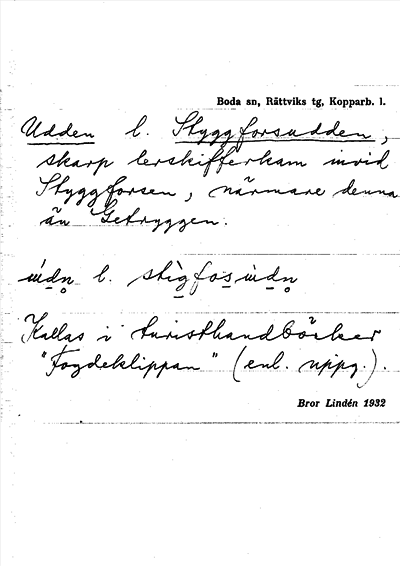 Boda sn, Rättviks tg, Kopparb. l.
Udden l. Styggforsudden,
skarp lerskifferkam invid
Styggforsen, närmare denna
än Getryggen.
ùdn̥ l. stìgfo̱s̱ùdn̥
Kallas i turisthandböcker
"Fogdeklippan" (enl. uppg.).
Bror Lindén 1932